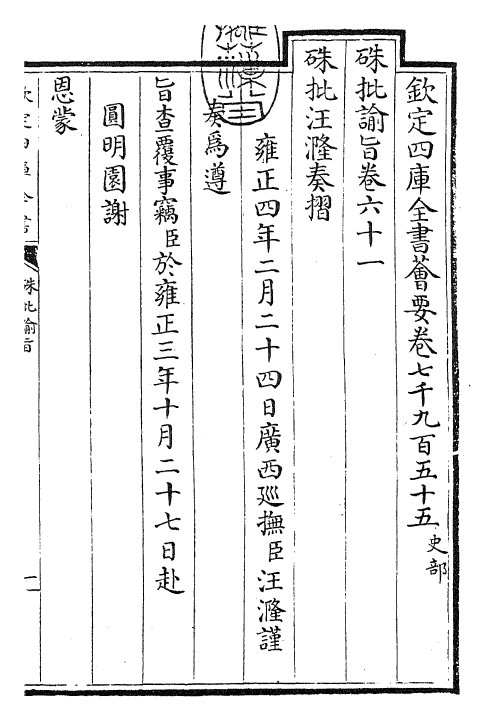 欽定四庫全書薈要卷七千九百五十五 史部
硃批諭旨卷六十一
硃批汪漋奏摺
雍正四年二月二十四日廣西廵撫臣汪漋謹
奏為遵
旨查覆事竊臣於雍正三年十月二十七日赴
圓明園謝
恩蒙
硃批諭旨